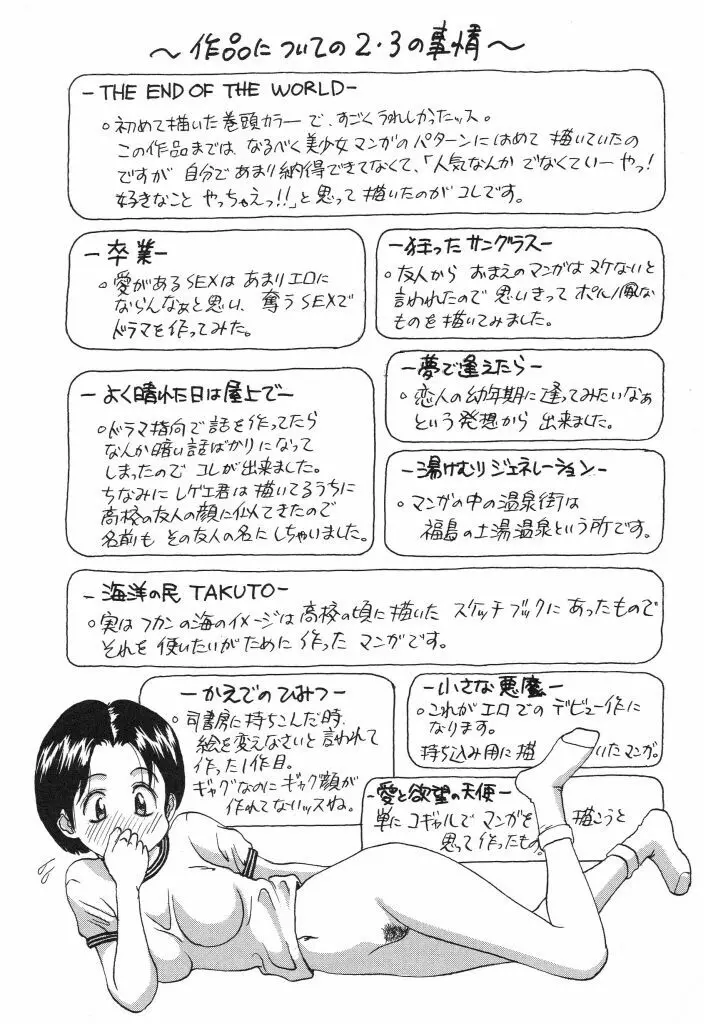 ～作品についての2・3の事情～
-THE END OF THE WORLD-
○初めて描いた巻頭カラーで、すごくうれしかったッス。
この作品までは、なるべく美少女マンガのパターンにはめて描いていたの
ですが自分であまり納得できてなくて、「人気なんかでなくていーやっ!
好きなことやっちゃえっ!!」と思って描いたのがコレです。
-卒業-
○愛があるSEXはあまりエロに
ならんなぁと思い、奪うSEXで
ドラマを作ってみた。
-狂ったサングラス-
○友人からおまえのマンガはヌケないと
言われたので思いきってポルノ風な
ものを描いてみました。
-よく晴れた日は屋上で-
○ドラマ指向で話を作ってたら
なんか暗い話ばかりになって
しまったのでコレが出来ました。
ちなみにレゲエ君は描いてるうちに
高校の友人の顔に似てきたので
名前もその友人の名にしちゃいました。
-夢で逢えたら-
○恋人の幼年期に逢ってみたいなぁ
という発想から出来ました。
-湯けむりジェネレーション-
○マンガの中の温泉街は
福島の土湯温泉という所です。
-海洋の民TAKUTO-
○実はフカンの海のイメージは高校の頃に描いたスケッチブックにあったもので
それを使いたいがために作ったマンガです。
-かえでのひみつ-
○司書房に持ちこんだ時、
絵を変えなさいと言われて
作った1作目。
ギャグなのにギャグ顔が
作れてないッスね。
-小さな悪魔-
○これがエロでのデビュー作に
なります。
持ち込み用に描いたマンガ。
-愛と欲望の天使-
単にコギャルでマンガを描こうと
思って作ったもの。